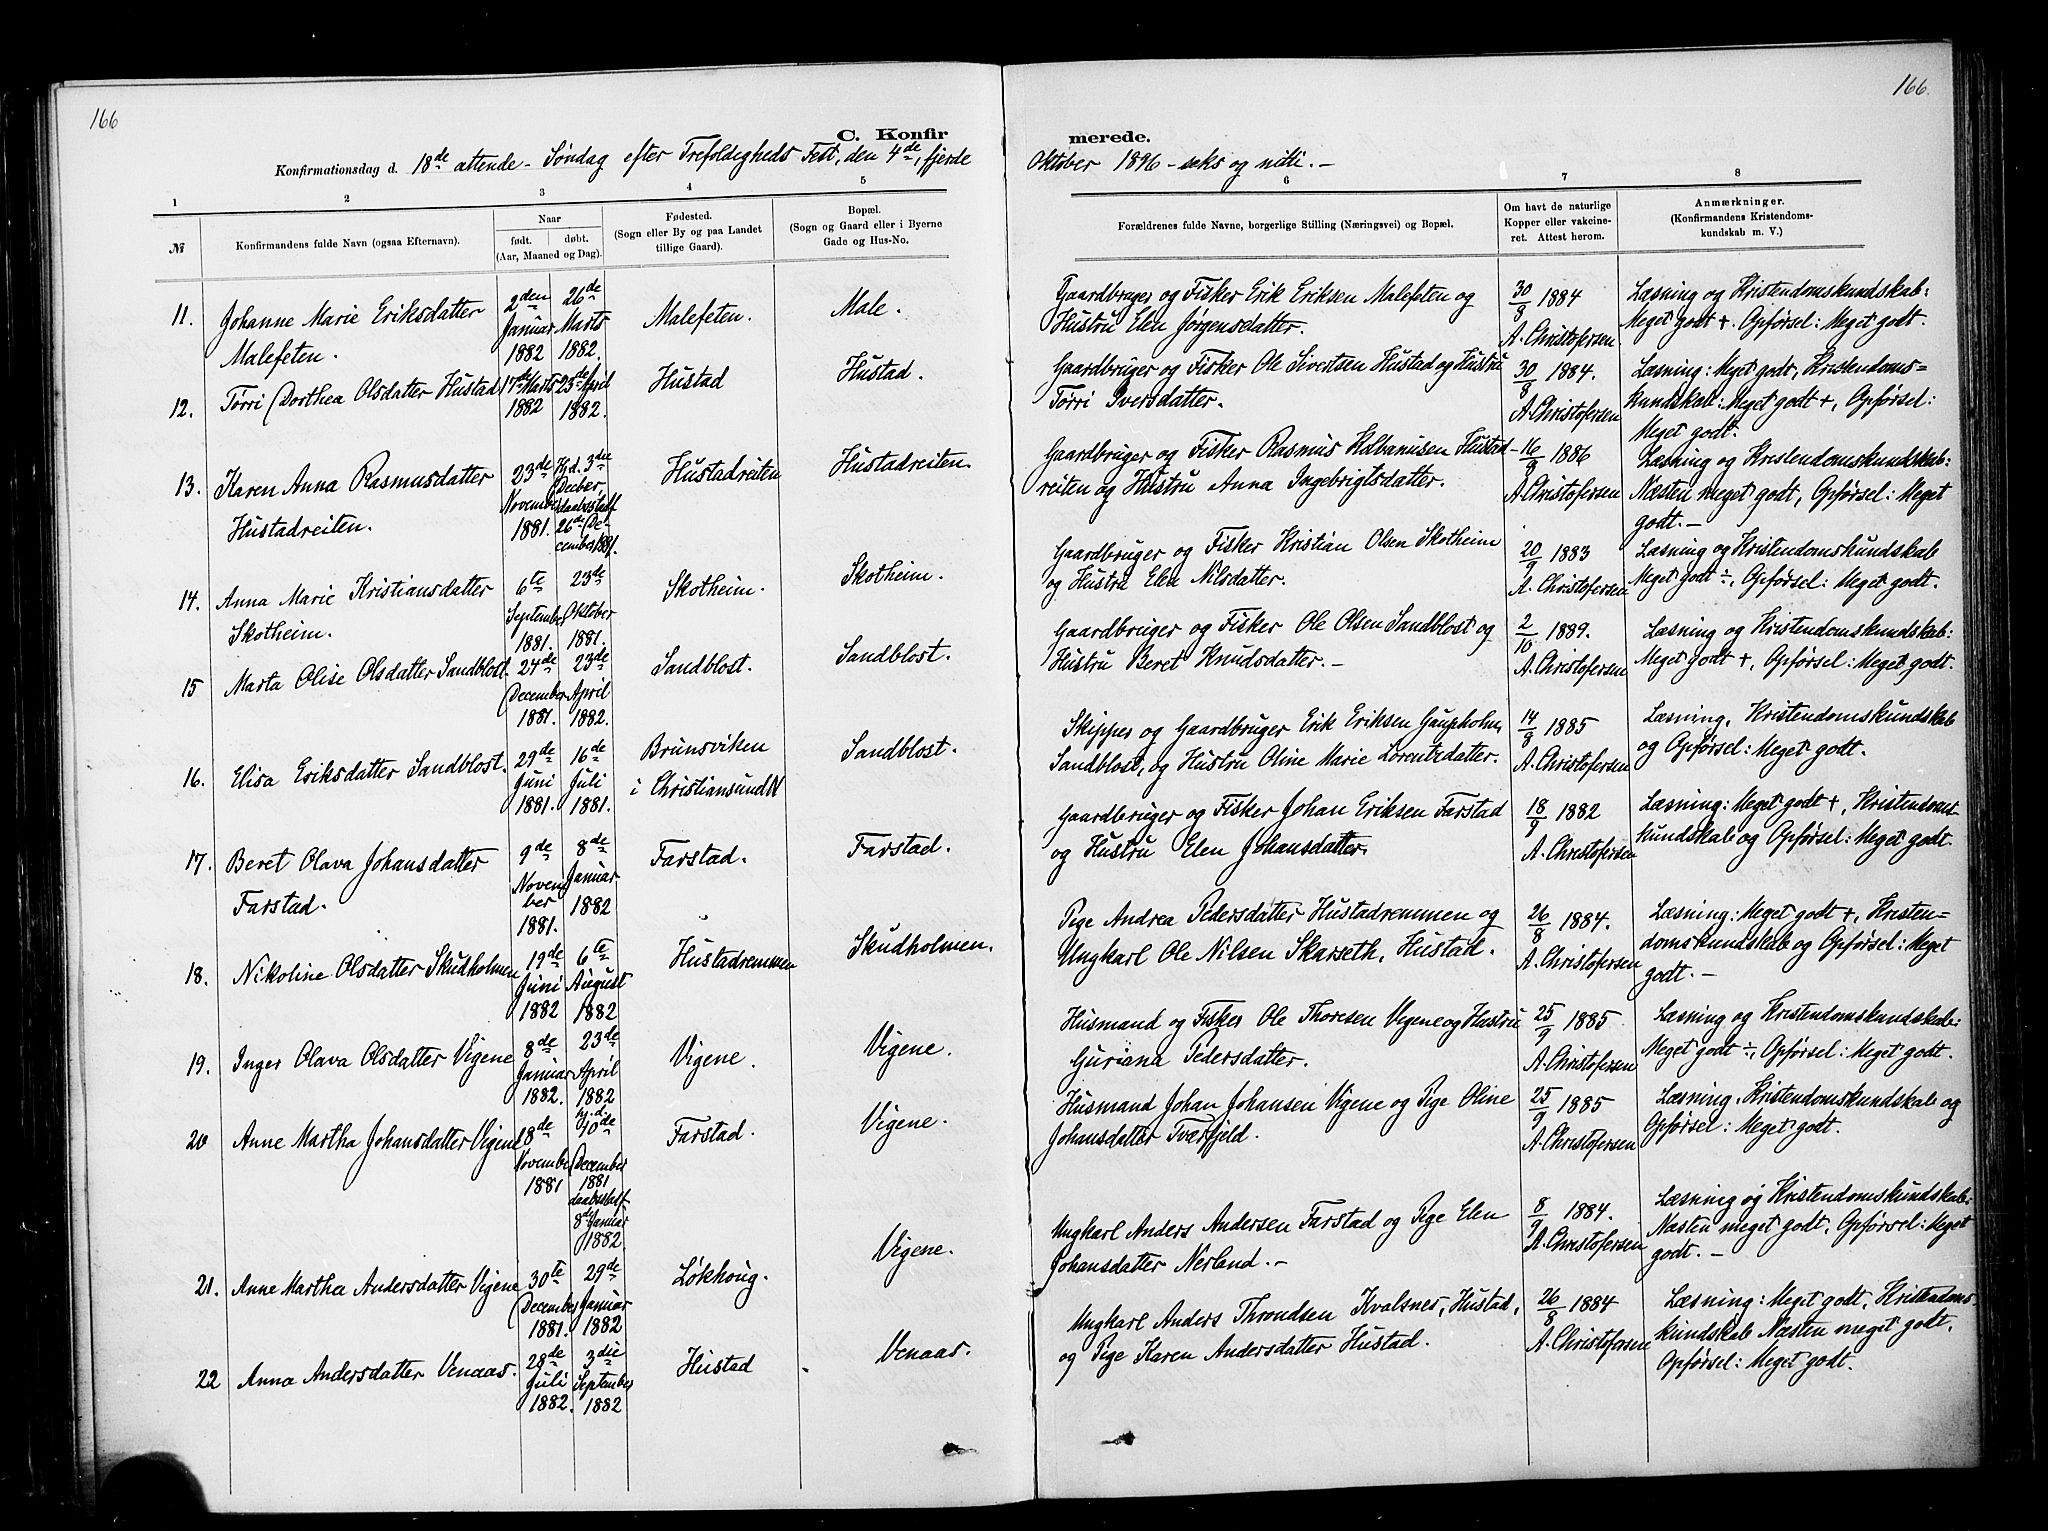 166
166.
C. Konfirmerede.
Konfirmationsdag d. 18de attende - Søndag efter Trefoldigheds Fest, den 4de, fjerde Oktober 1896 - seks og nitti. -
1 2 3 4 5 6 7 8
№
Konfirmandens fulde Navn (ogsaa Efternavn).
Naar
født. døbt.
(Aar, Maaned og Dag).
Fødested.
(Sogn eller By og paa Landet
tillige Gaard).
Bopæl.
(Sogn og Gaard eller i Byerne
Gade og Hus-No.
Forældrenes fulde Navne, borgerlige Stilling (Næringsvei) og Bopæl.
Om havt de naturlige
Kopper eller vakcine-
ret. Attest herom.
Anmærkninger.
(Konfirmandens Kristendoms-
kundskab m. V.)
11. Johanne Marie Eriksdatter
Malefeten.
2den Januar 1882
26de Marts 1882.
Malefeten.
Male.
Gaardbruger og Fisker Erik Eriksen Malefeten og
Hustru Elen Jørgensdatter.
30/8 1884
A. Christofersen
Læsning og Kristendomskundskab:
Meget godt +. Opførsel: Meget godt.
12. Tørri Dorthea Olsdatter Hustad
17de Marts 1882
23de April 1882.
Hustad
Hustad.
Gaardbruger og Fisker Ole Sivertsen Hustad og Hustru
Tørri Iversdatter.
30/8 1884.
A. Christofersen
Læsning: Meget godt, Kristendoms=
kundskab: Meget godt +, Opførsel:
Meget godt.
13. Karen Anna Rasmusdatter
Hustadreiten.
23de November 1881.
Hjd. 3die Decber, daabsstadf. 26de December 1881.
Hustadreiten
Hustadreiten.
Gaardbruger og Fisker Rasmus Hustad-
reiten og Hustru Anna Ingebrigtsdatter.
16/9 1886
A. Christofersen
Læsning og Kristendomskundskab:
Næsten meget godt, Opførsel: Meget
godt. -
14. Anna Marie Kristiansdatter
Skotheim.
6te September 1881.
23de Oktober 1881.
Skotheim.
Skotheim.
Gaardbruger og Fisker Kristian Olsen Skotheim
og Hustru Elen Nilsdatter.
20/9 1883
A. Christofersen
Læsning og Kristendomskundskab
Meget godt ÷, Opførsel: Meget godt.
15 Marta Olise Olsdatter Sandblost.
24de December 1881.
23de April 1882.
Sandblost.
Sandblost.
Gaardbruger og Fisker Ole Olsen Sandblost og
Hustru Beret Knudsdatter. -
2/10 1889.
A. Christofersen
Læsning og Kristendomskundskab:
Meget godt +, Opførsel: Meget godt.
16. Elisa Eriksdatter Sandblost.
29de Juni 1881.
16de Juli 1881.
Brunsviken
i Christiansund N
Sandblost.
Skipper og Gaardbruger Erik Eriksen Gaupholm,
Sandblost, og Hustru Oline Marie Lorentzdatter.
14/8 1885
A. Christofersen
Læsning, Kristendomskundskab
og Opførsel: Meget godt.
17. Beret Olava Johansdatter
Farstad.
9de November 1881.
8de Januar 1882
Farstad.
Farstad.
Gaardbruger og Fisker Johan Eriksen Farstad
og Hustru Elen Johansdatter.
18/9 1882
A. Christofersen
Læsning: Meget godt +, Kristendoms
kundskab og Opførsel: Meget godt.
18. Nikoline Olsdatter Skudholmen
19de Juni 1882
6te August 1882
Hustadremmen
Skudholmen.
Pige Andrea Pedersdatter Hustadremmen og
Ungkarl Ole Nilsen Skarseth, Hustad.
26/8 1884.
A. Christofersen
Læsning: Meget godt +, Kristen=
domskundskab og Opførsel: Meget
godt. -
19. Inger Olava Olsdatter Vigene
8de Januar 1882.
23de April 1882
Vigene.
Vigene.
Husmand og Fisker Ole Thoresen Vigene og Hustru
Guriana Pedersdatter.
25/9 1885
A. Christofersen
Læsning og Kristendomskundskab:
Meget godt ÷, Opførsel: Meget godt.
20 Anne Martha Johansdatter Vigene
18de November 1881
hj.d. 10de December 1881 daabsstadf. 8de Januar 1882.
Farstad.
Vigene.
Husmand Johan Johansen Vigene og Pige Oline
Johansdatter Tværfjeld.
25/9 1885
A. Christofersen
Læsning, Kristendomskundskab og
Opførsel: Meget godt.
21. Anne Martha Andersdatter Vigene
30te December 1881.
29de Januar 1882
Løkhoug.
Vigene.
Ungkarl Anders Andersen Farstad og Pige Elen
Johansdatter Nerland. -
8/9 1884.
A. Christofersen
Læsning og Kristendomskundskab:
Næsten meget godt, Opførsel: Meget
godt. -
22 Anna Andersdatter Venaas.
28de Juli 1882.
3die September 1882
Hustad
Venaas.
Ungkarl Anders Throndsen Kvalsnes, Hustad,
og Pige Karen Andersdatter Hustad.
26/8 1884
A. Christofersen
Læsning: Meget godt, Kristendoms-
kundskab Næsten meget godt,
Opførsel: Meget godt.